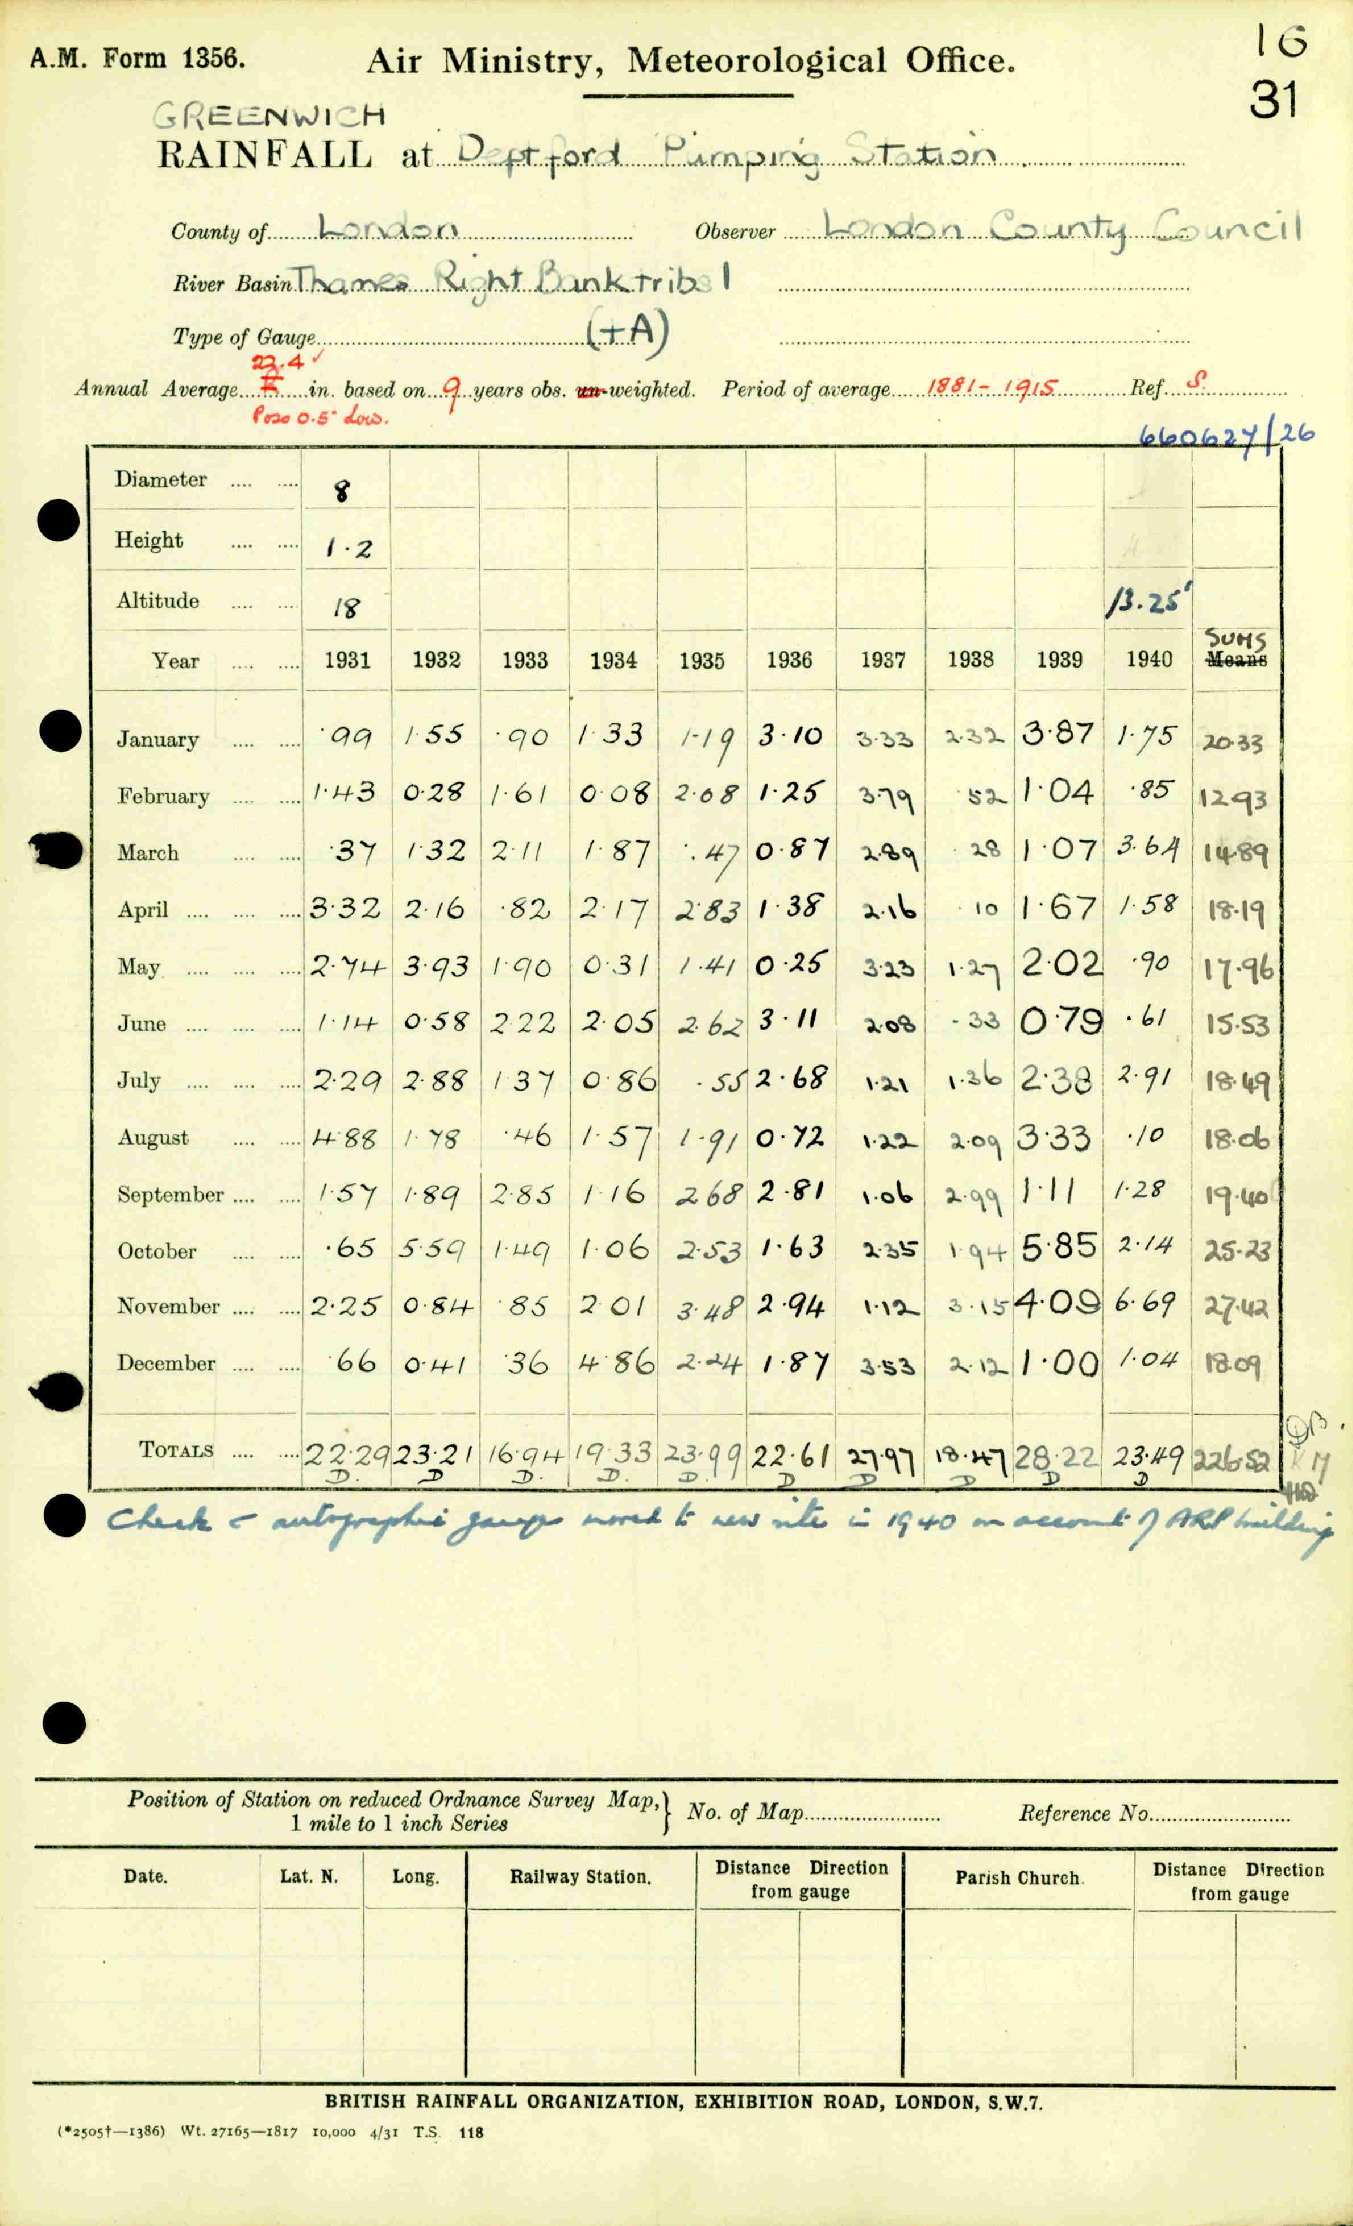 A.M. Form 1356. Air Ministry, Meteorological Office. 16
31
GREENWICH
RAINFALL at Deptford Pumping Station
County of London Observer London County Council
River Basin Thames Right Bank tribs 1
Type of Gauge (+A)
22.4 ✓
Annual Average in. based on 9 years obs. un-weighted. Period of average 1881-1915 Ref. S.
Poss 0.5" Low.
660627/26
Diameter .... .... 8
Height .... .... 1.2
Altitude .... .... 18 13.25'
SUMS
Year .... .... 1931 1932 1933 1934 1935 1936 1937 1938 1939 1940 Means
January .... .... .99 1.55 .90 1.33 1.19 3.10 3.33 2.32 3.87 1.75 20.33
February .... .... 1.43 0.28 1.61 0.08 2.08 1.25 3.79 52 1.04 .85 12.93
March .... .... .37 1.32 2.11 1.87 .47 0.87 2.89 28 1.07 3.64 14.89
April .... .... .... 3.32 2.16 .82 2.17 2.83 1.38 2.16 10 1.67 1.58 18.19
May .... .... .... 2.74 3.93 1.90 0.31 1.41 0.25 3.23 1.27 2.02 .90 17.96
June .... .... .... 1.14 0.58 2.22 2.05 2.62 3.11 2.08 .33 0.79 .61 15.53
July .... .... .... 2.29 2.88 1.37 0.86 .55 2.68 1.21 1.36 2.38 2.91 18.49
August .... .... 4.88 1.78 .46 1.57 1.91 0.72 1.22 2.09 3.33 .10 18.06
September .... .... 1.57 1.89 2.85 1.16 2.68 2.81 1.06 2.99 1.11 1.28 19.40
October .... .... .65 5.59 1.49 1.06 2.53 1.63 2.35 1.94 5.85 2.14 25.23
November .... .... 2.25 0.84 .85 2.01 3.48 2.94 1.12 3.15 4.09 6.69 27.42
December .... .... 66 0.41 .36 4.86 2.24 1.87 3.53 2.12 1.00 1.04 18.09
TOTALS .... .... 22.29 23.21 16.94 19.33 23.99 22.61 27.97 18.47 28.22 23.49 226.52
D. D D. D. D. D D D D D
Check & autographic gauges moved to new site in 1940 on account of ARP building
Position of Station on reduced Ordnance Survey Map, } No. of Map Reference No.
1 mile to 1 inch Series
Date. Lat. N. Long. Railway Station. Distance Direction Parish Church. Distance Direction
from gauge from gauge
BRITISH RAINFALL ORGANIZATION, EXHIBITION ROAD, LONDON, S.W.7.
(*2505†—1386) Wt. 27165—1817 10,000 4/31 T.S. 118